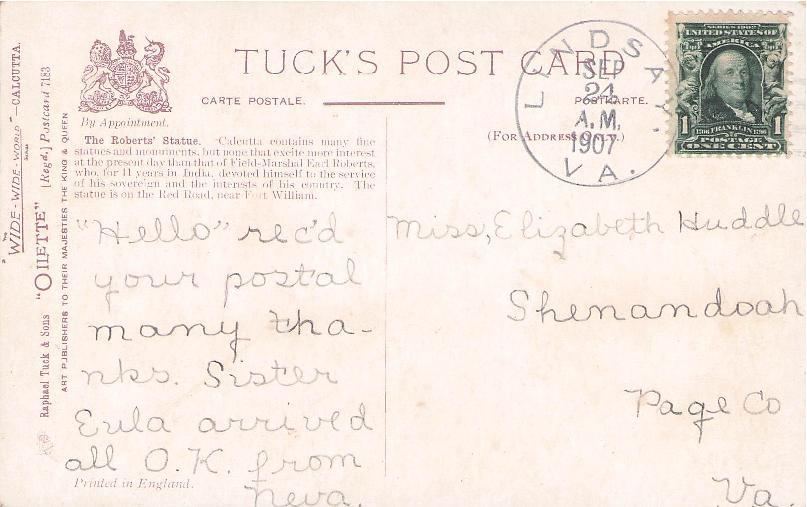 TUCK'S POST CARD
CARTE POSTALE.
POSTKARTE.
(FOR ADDRESS ONLY.)
By Appointment.
The Roberts' Statue. Calcutta contains many fine
statues and monuments, but none that excite more interest
at the present day than that of Field-Marshal Earl Roberts,
who, for 41 years in India, devoted himself to the service
of his sovereign and the interests of his country. The
statue is on the Red Road, near Fort William.
"WIDE-WIDE-WORLD"—CALCUTTA.
Raphael Tuck & Sons "OILETTE" [Regd.] Postcard 7183
ART PUBLISHERS TO THEIR MAJESTIES THE KING & QUEEN
LINDSAY,
SEP
24
A.M.
1907
VA.
SERIES 1902
UNITED STATES OF
AMERICA
1 FRANKLIN 1
POSTAGE
ONE CENT
"Hello" rec'd
your postal
many tha-
nks. Sister
Eula arrived
all O.K. from
Neva.
Miss, Elizabeth Huddle
Shenandoah
Page Co
Va.
Printed in England.